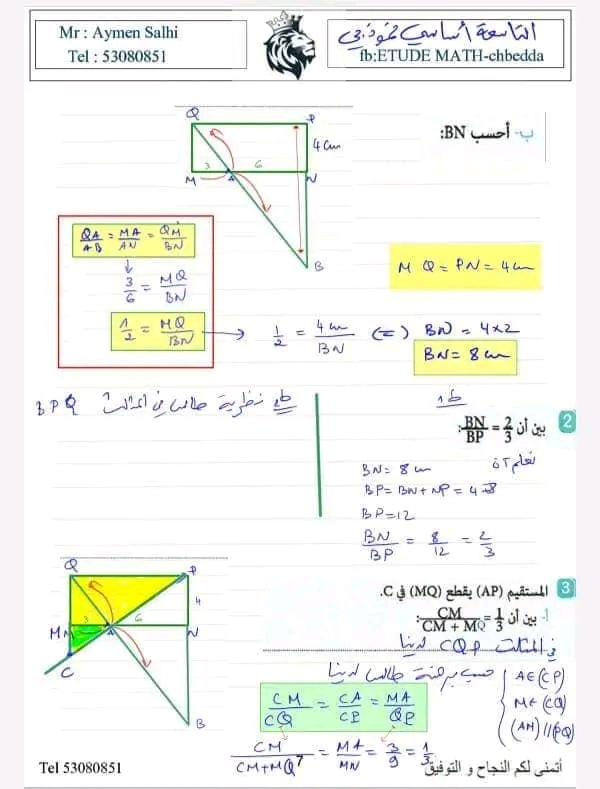 Mr : Aymen Salhi
Tel : 53080851
التاسعة أساسي نموذجي
fb:ETUDE MATH-chbedda
ب- أحسب BN:
Q P
4 cm
3 6
M A N
B
QA/AB = MA/AN = QM/BN
3/6 = MQ/BN
1/2 = MQ/BN
M Q = PN = 4 cm
1/2 = 4 cm/BN (=) BN = 4×2
BN = 8 cm
ط2 نظرية طالس في المثلث BPQ
ط1
2 بين أن BN/BP = 2/3:
نعلم أن
BN = 8 cm
BP = BN + NP = 4+8
BP = 12
BN/BP = 8/12 = 2/3
Q P
4
3 6
M A N
C
B
3 المستقيم (AP) يقطع (MQ) في C.
أ- بين أن CM/CM + MQ = 1/3:
في المثلث CQP لدينا
A∈(CP)
M∈(CQ)
(AM)//(PQ)
حسب مبرهنة طالس لدينا
CM/CQ = CA/CP = MA/QP
CM/CM+MQ = MA/MN = 3/9 = 1/3
Tel 53080851
أتمنى لكم النجاح و التوفيق